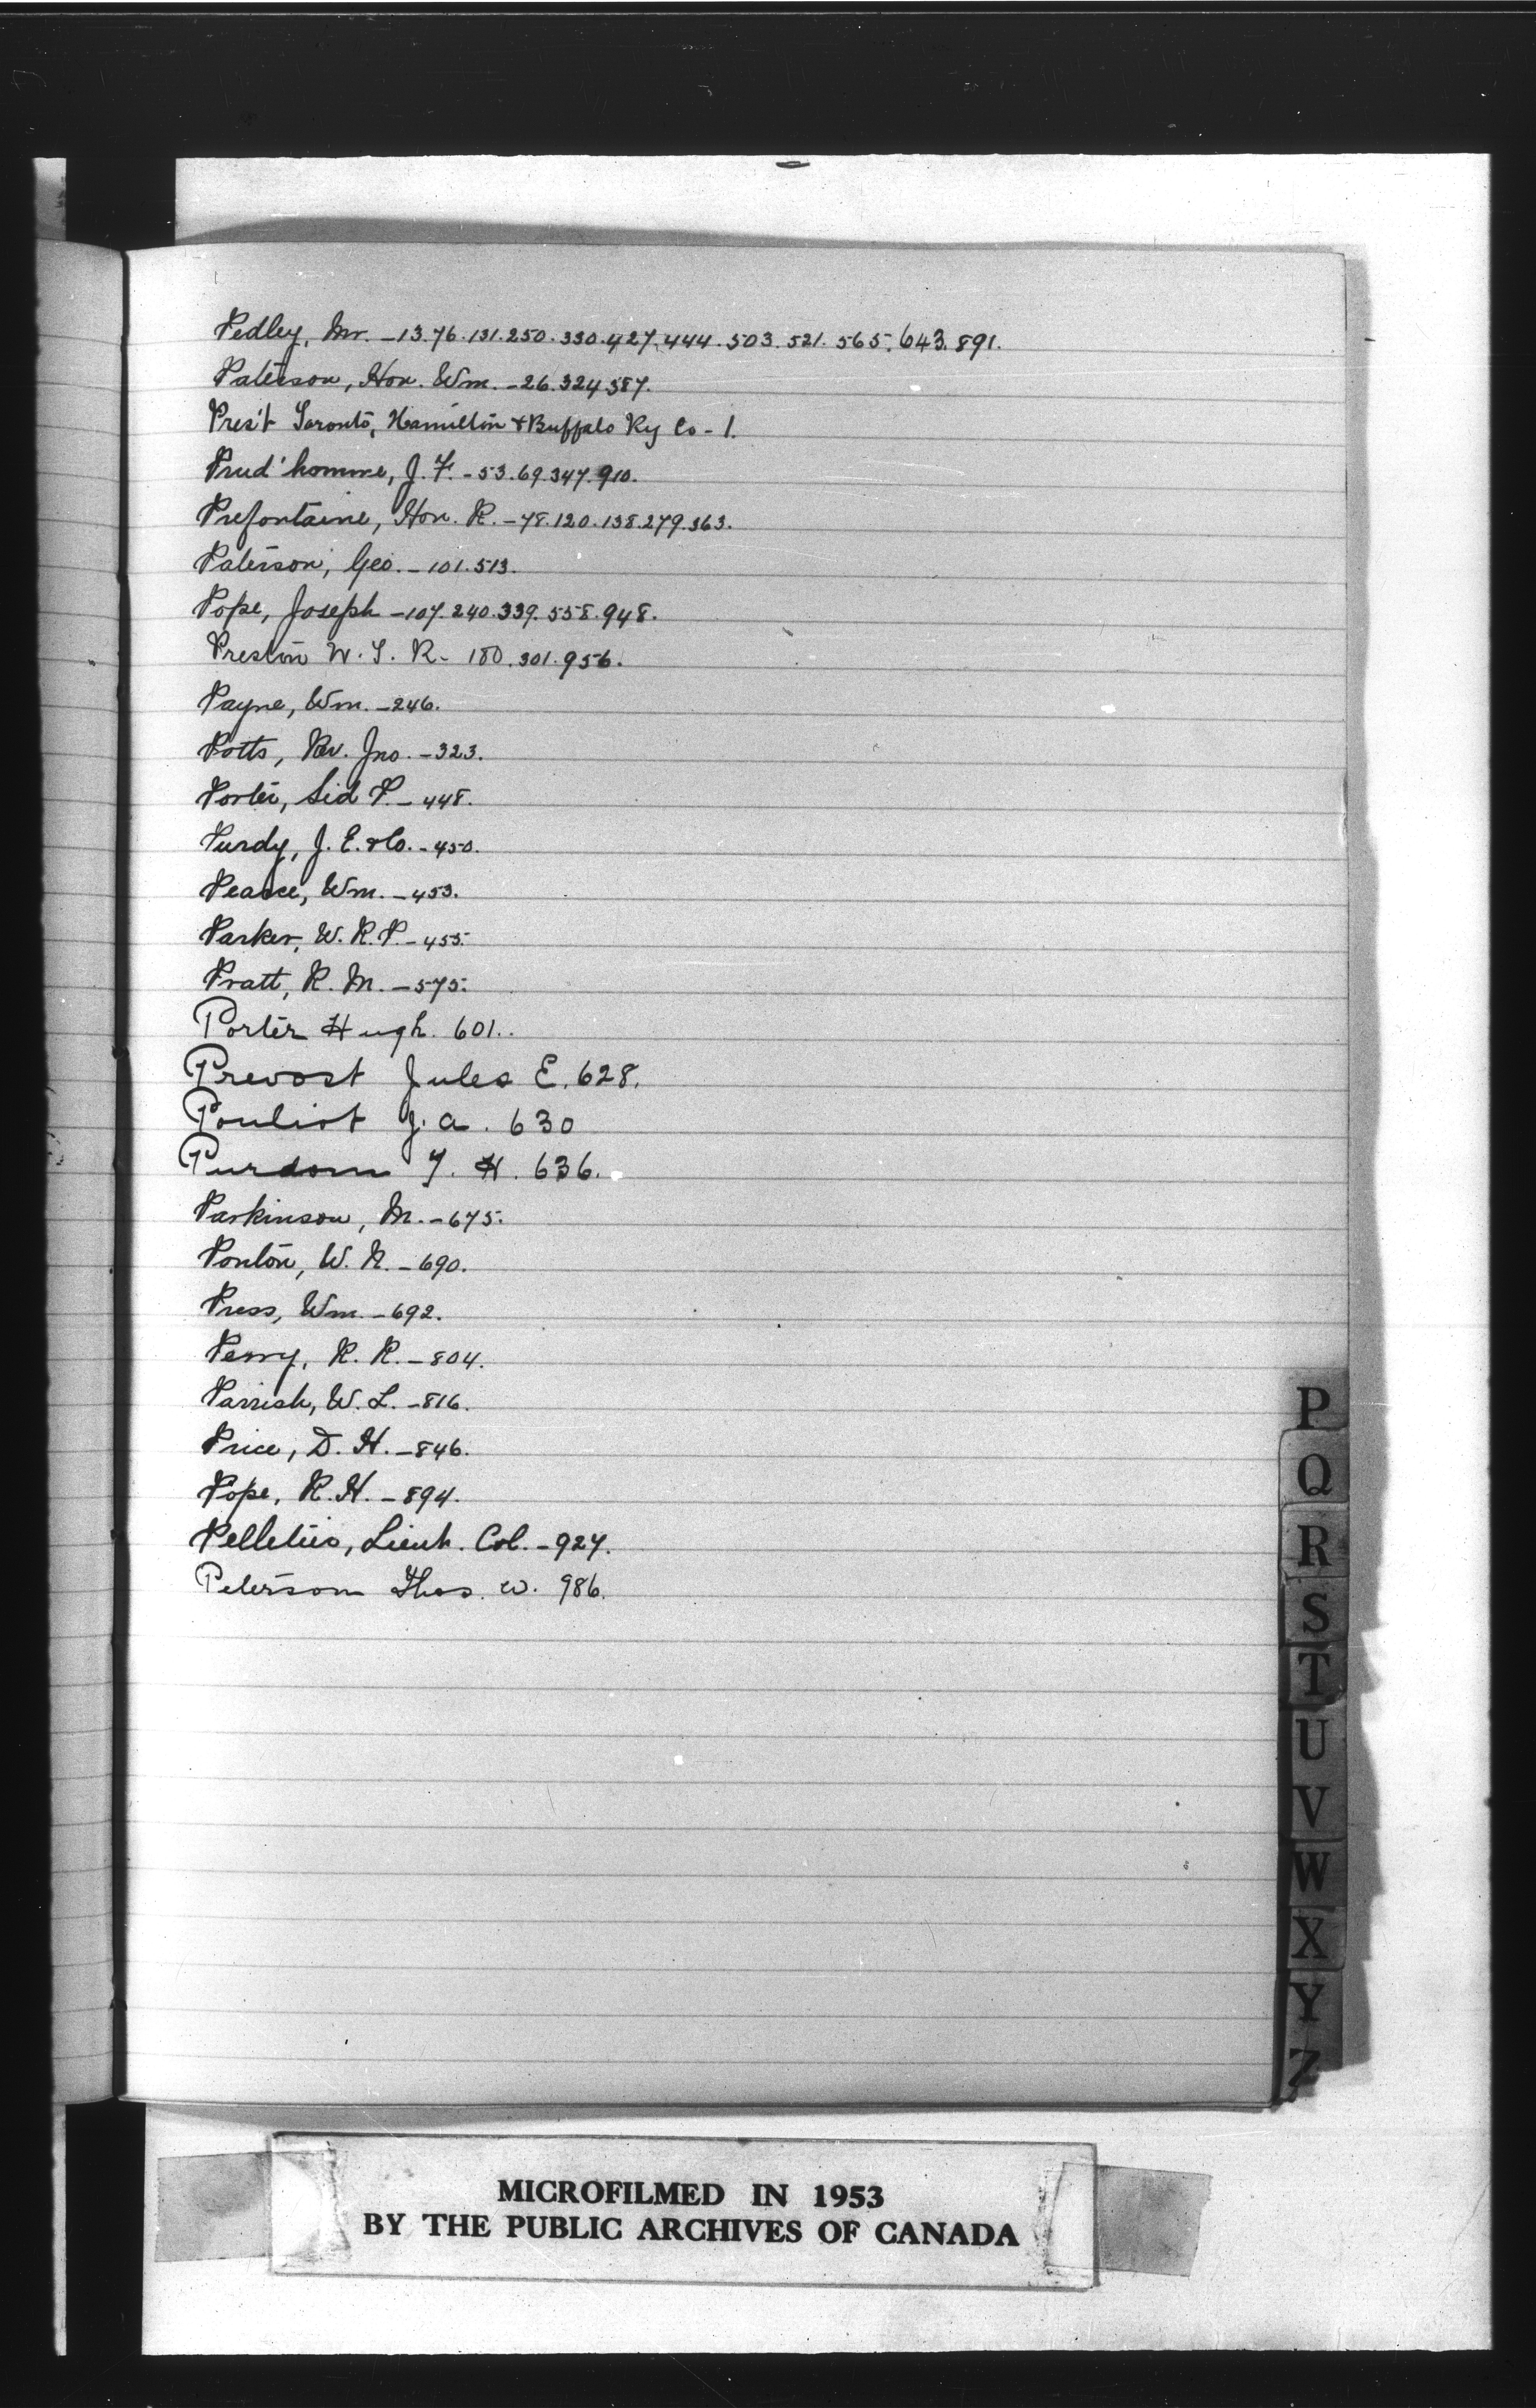 Pedley, Mr. - 13.76.131.250.330.427.444.503.521.565.643.891.
Paterson, Hon. Wm. - 26.324.387.
Pres't Toronto, Hamilton & Buffalo Ry Co - 1.
Prud'homme, J. F. - 53.69.347.910.
Prefontaine, Hon. R. - 78.120.138.279.363.
Paterson, Geo. - 101.513.
Pope, Joseph - 107.240.339.558.948.
Preston W. T. R - 180.301.956.
Payne, Wm. - 246.
Potts, Rev. Jno. - 323.
Porter, Sid P. - 448.
Purdy, J. E. & Co. - 450.
Pearce, Wm. - 453.
Parker, W. R. P. - 455.
Pratt, R. M. - 575.
Porter Hugh. 601..
Prevost Jules E. 628.
Pouliot J. a. 630
Purdom T. H. 636.
Parkinson, M. - 675.
Ponton, W. N. - 690.
Press, Wm. - 692.
Perry, R. R. - 804.
Parrish, W. L. - 816.
Price, D. H. - 846.
Pope, R. H. - 894.
Pelletier, Lieut. Col. - 927.
Peterson Thos. W. 986.
P
Q
R
S
T
U
V
W
X
Y
Z
MICROFILMED IN 1953
BY THE PUBLIC ARCHIVES OF CANADA